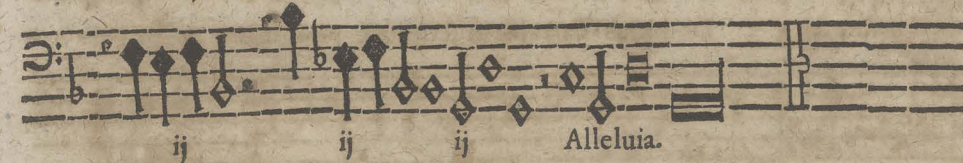 ij ij ij Alleluia.